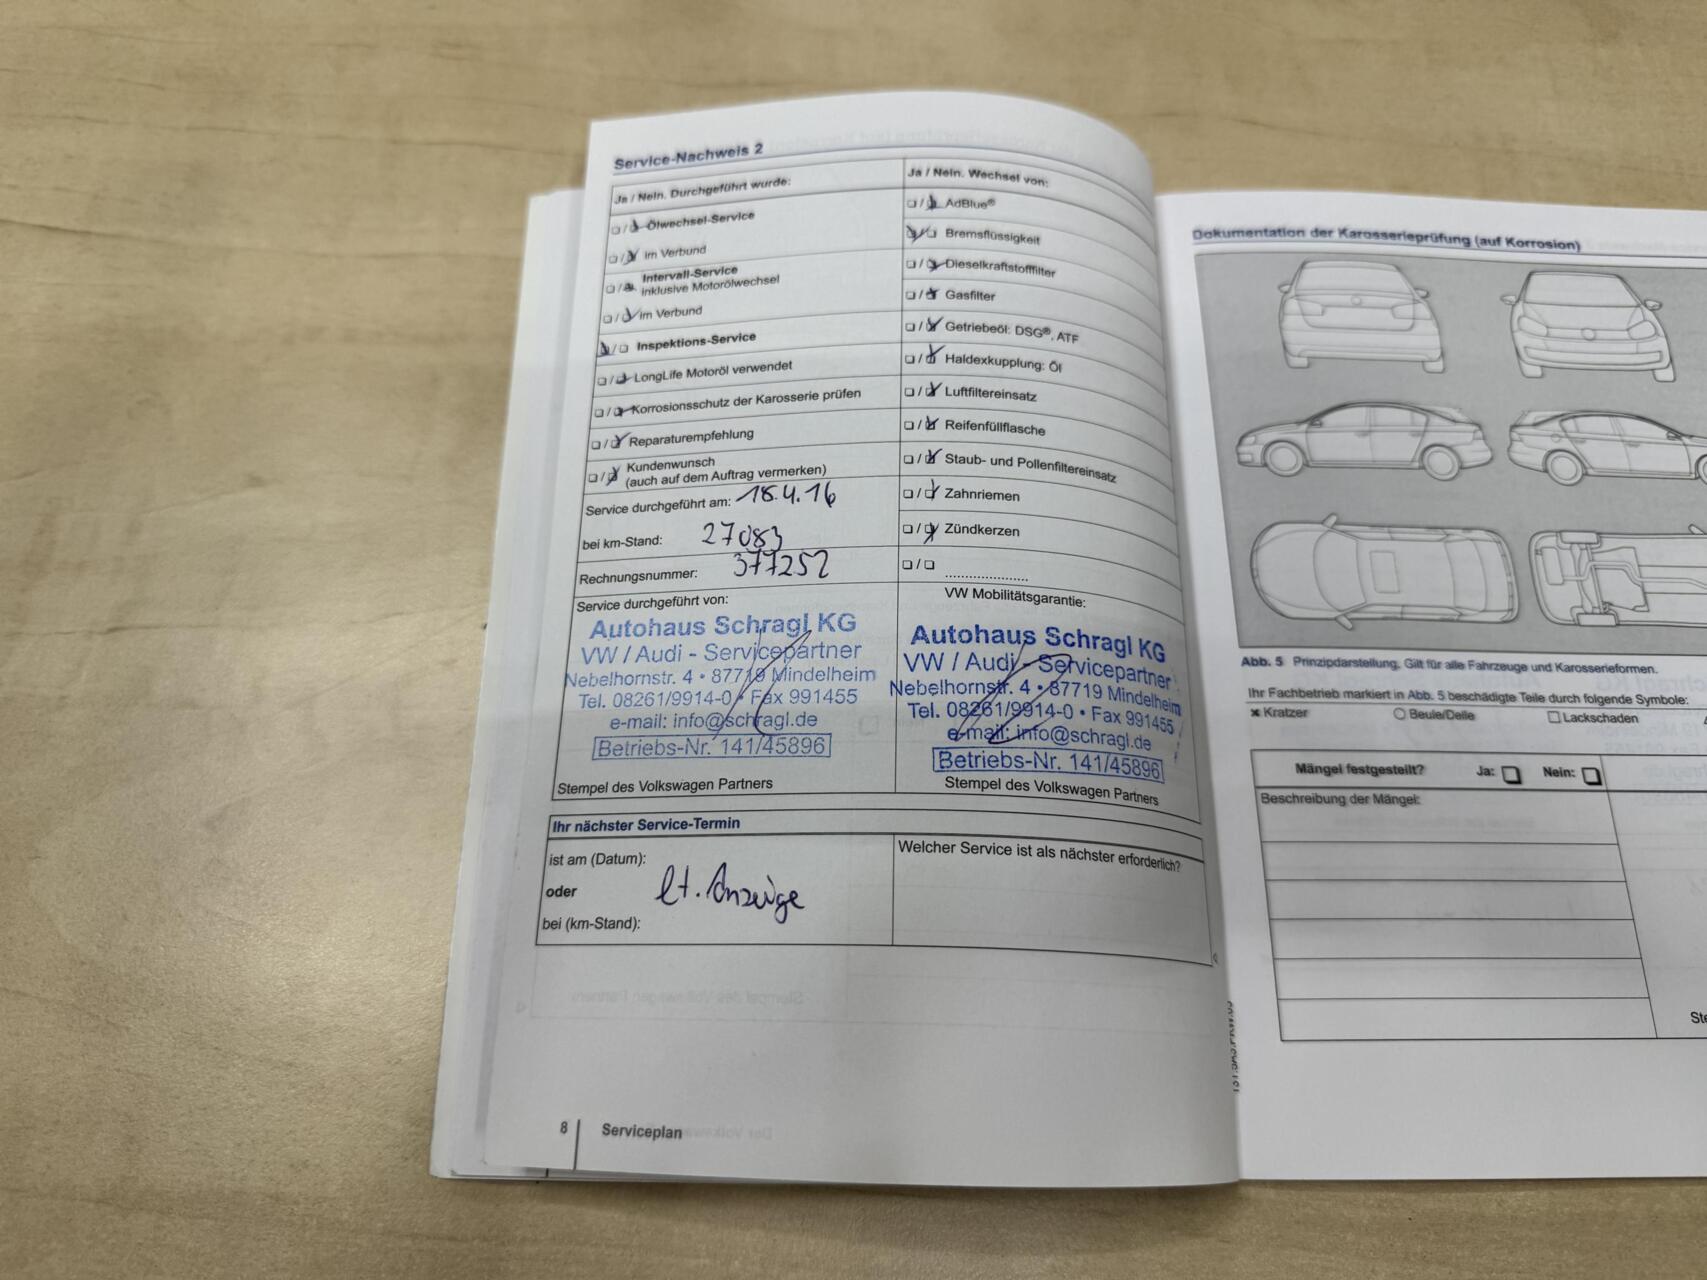 Service-Nachweis 2
Ja / Nein. Durchgeführt wurde:
❏ / ❏ Ölwechsel-Service
❏ / ❏ im Verbund
❏ / ❏ Intervall-Service
inklusive Motorölwechsel
❏ / ❏ im Verbund
❏ / ❏ Inspektions-Service
❏ / ❏ LongLife Motoröl verwendet
❏ / ❏ Korrosionsschutz der Karosserie prüfen
❏ / ❏ Reparaturempfehlung
❏ / ❏ Kundenwunsch
(auch auf dem Auftrag vermerken)
Service durchgeführt am: 18.4.16
bei km-Stand: 27083
Rechnungsnummer: 377252
Service durchgeführt von:
Autohaus Schragl KG
VW / Audi - Servicepartner
Nebelhornstr. 4 • 87719 Mindelheim
Tel. 08261/9914-0 • Fax 991455
e-mail: info@schragl.de
Betriebs-Nr. 141/45896
Stempel des Volkswagen Partners
Ja / Nein. Wechsel von:
❏ / ❏ AdBlue®
❏ / ❏ Bremsflüssigkeit
❏ / ❏ Dieselkraftstofffilter
❏ / ❏ Gasfilter
❏ / ❏ Getriebeöl: DSG®, ATF
❏ / ❏ Haldexkupplung: Öl
❏ / ❏ Luftfiltereinsatz
❏ / ❏ Reifenfüllflasche
❏ / ❏ Staub- und Pollenfiltereinsatz
❏ / ❏ Zahnriemen
❏ / ❏ Zündkerzen
❏ / ❏ ......................
VW Mobilitätsgarantie:
Autohaus Schragl KG
VW / Audi - Servicepartner
Nebelhornstr. 4 • 87719 Mindelheim
Tel. 08261/9914-0 • Fax 991455
e-mail: info@schragl.de
Betriebs-Nr. 141/45896
Stempel des Volkswagen Partners
Ihr nächster Service-Termin
ist am (Datum):
oder lt. Anzeige
bei (km-Stand):
Welcher Service ist als nächster erforderlich?
8 Serviceplan
Dokumentation der Karosserieprüfung (auf Korrosion)
Abb. 5 Prinzipdarstellung. Gilt für alle Fahrzeuge und Karosserieformen.
Ihr Fachbetrieb markiert in Abb. 5 beschädigte Teile durch folgende Symbole:
× Kratzer ○ Beule/Delle □ Lackschaden
Mängel festgestellt? Ja: ❏ Nein: ❏
Beschreibung der Mängel: